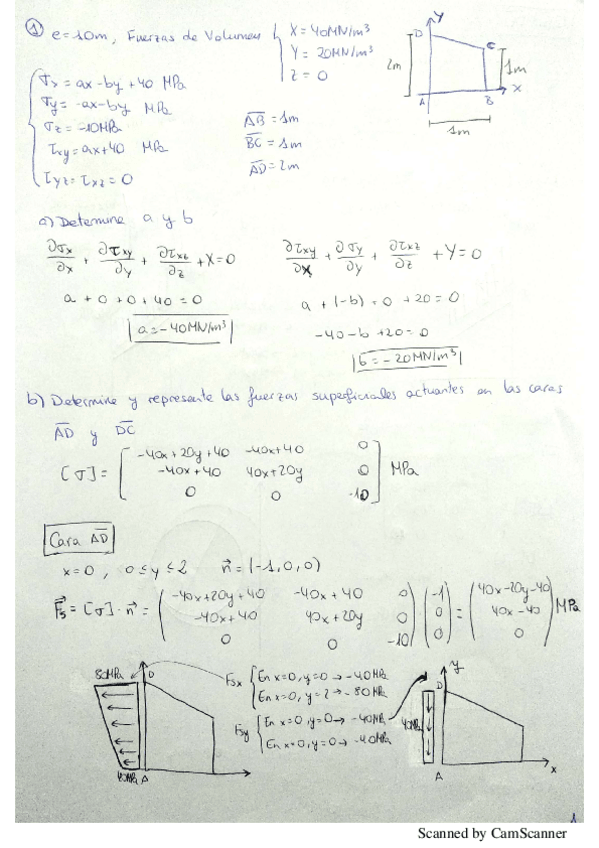 ① e=10m, Fuerzas de Volumen { X = 40MN/m³
Y = 20MN/m³
Z = 0
σx = ax-by+40 MPa
σy = -ax-by MPa
σz = -10MPa
τxy = ax+40 MPa
τyz = τxz = 0
AB = 1m
BC = 1m
AD = 2m
Y
D
C
2m
1m
A
B
x
1m
a) Determine a y b
∂σx/∂x + ∂τxy/∂y + ∂τxz/∂z + X = 0
∂τxy/∂x + ∂σy/∂y + ∂τxz/∂z + Y = 0
a + 0 + 0 + 40 = 0
a + (-b) = 0 + 20 = 0
a = -40MN/m³
-40 - b + 20 = 0
b = -20MN/m³
b) Determine y represente las fuerzas superficiales actuantes en las caras
AD y DC
[σ] = [ -40x+20y+40 -40x+40 0
-40x+40 40x+20y 0
0 0 -10 ] MPa
Cara AD
x=0, 0≤y≤2 n=(-1,0,0)
Fs = [σ]·n = ( -40x+20y+40 -40x+40 0 ) ( -1 ) = ( 40x-20y-40 )
( -40x+40 40x+20y 0 ) ( 0 ) ( 40x-40 ) MPa
( 0 0 -10 ) ( 0 ) ( 0 )
80MPa
D
Fsx { En x=0, y=0 → -40MPa
En x=0, y=2 → -80MPa
Fsy { En x=0, y=0 → -40MPa
En x=0, y=0 → -40MPa
40MPa
A
y
D
40MPa
A
x
1
Scanned by CamScanner